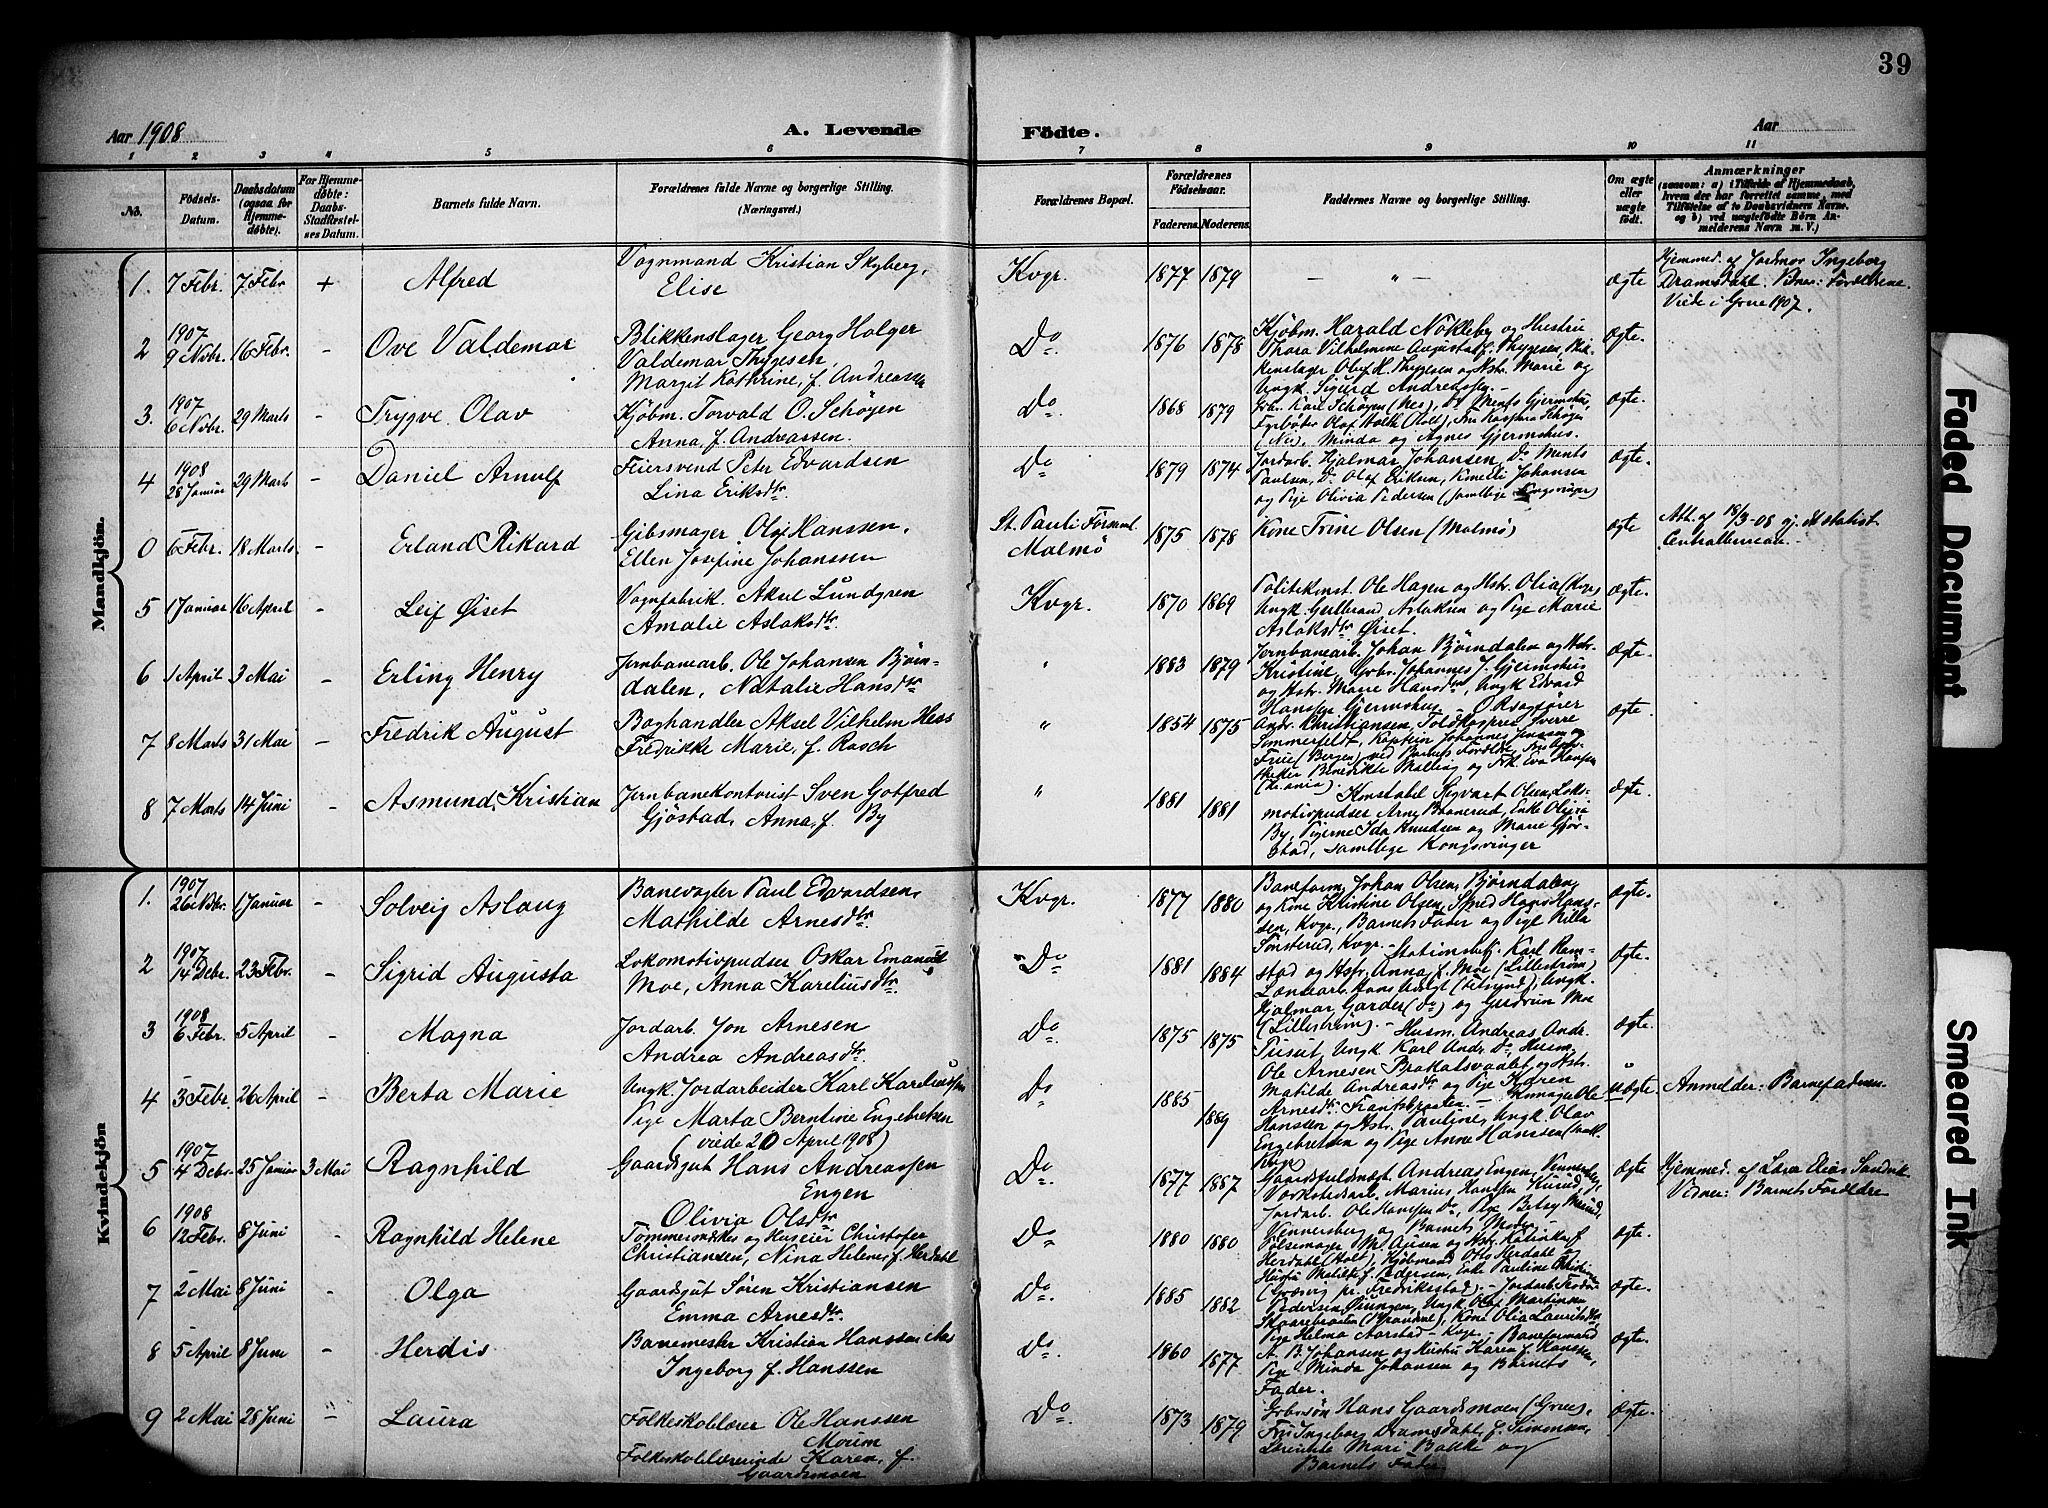 39
Aar 1908
A. Levende
Födte.
Aar
1 2 3 4 5 6 7 8 9 10 11
No.
Fødsels-
Datum.
Daabsdatum
(ogsaa for
Hjemme-
døbte).
For Hjemme-
døbte:
Daabs-
Stadfæstel-
ses Datum.
Barnets fulde Navn.
Forældrenes fulde Navne og borgerlige Stilling.
(Næringsvei.)
Forældrenes Bopæl.
Forældrenes
Fødselsaar.
Faderens. Moderens.
Faddernes Navne og borgerlige Stilling.
Om ægte
eller
uægte
født.
Anmærkninger
(saasom: a) i Tilfælde af Hjemmedaab,
hvem der har forrettet samme, med
Tilføielse af to Daabsvidners Navne,
og b) ved uægtefødte Børn An-
melderens Navn m. V.)
Mandkjön.
1. 7 Febr. 7 Febr + Alfred
Vognmand Kristian Skyberg,
Elise
Kvgr. 1877 1879 — „ — ægte
Hjemmed. af Jordmor Ingeborg
Dramsdahl. Vdner: Forældrene.
Viede i Grue 1907.
2 1907 9 Novbr. 16 Febr. - Ove Valdemar
Blikkenslager Georg Holger
Valdemar Thygesen,
Margit Kathrine, f. Andreassen
Do 1876 1878
Kjøbm. Harald Nökleby og Hustru
Thora Vilhelmine Augusta f. Thygesen, Blik-
kenslager Oluf H. Thygesen og Hstr. Marie og
Ungk. Sigurd Andreassen. -
Ægte.
3. 1907 6 Novbr. 29 Marts - Trygve Olav
Kjøbm. Torvald O. Schøyen
Anna, f. Andreassen.
Do 1868 1879
Gbr. Karl Schøyen (Nes), Do Ments Gjermshus,
Fyrbøter Olaf Holth (Holt), Fru Schøyen
(Nes), Minda og Agnes Gjermshus.
Ægte.
4 1908 28 Januar 29 Marts - Daniel Arnulf
Feiersvend Peter Edvardsen
Lina Eriksdtr.
Do 1879 1874
Jordarb. Hjalmar Johansen, Do Ments
Paulsen, Do Olaf Eriksen, Kone Eli Johansen
og Pige Olivia Pedersen (samtlige Kongsvinger)
Ægte.
0 6 Febr. 18 Marts - Erland Rikard
Gibsmager Oluf Hanssen,
Ellen Josefine Johanssen
St. Pauli Forsaml.
Malmö
1875 1878 Kone Trine Olsen (Malmö) ægte
Att. af 18/3-08 gj. det statist.
Centralbureau.
5 1 Januar 16 April - Leif Øiset
Vognfabrik. Aksel Lundgren
Amalie Aslaksdtr.
Kvgr. 1870 1869
Politikonst. Ole Hagen og Hstr. Olia (Kvgr)
Ungk. Gulbrand Aslaksen og Pige Marie
Aslaksdtr Øiset.
ægte.
6 1 April 3 Mai - Erling Henry
Jernbanearb. Ole Johansen Bjørn-
dalen, Natalie Hansdtr
„ 1883 1879
Jernbanearb. Johan Bjørndalen og Hstr.
Kristine, Gbr. Johannes J. Gjermshus
og Hstr. Marie Hansdtr, Ungk Edvard
Hanssen Gjermshus. -
Ægte.
7 8 Marts 31 Mai - Fredrik August
Boghandler Aksel Vilhelm Hess
Fredrikke Marie, f. Rasch
„ 1854 1875
O.R.sagfører
Andr. Christiansen, Toldkasserer Sverre
Sommerfeldt, Kaptein Johannes Jenssen og
Frue (Bergen) ved Barnets Forældre,
Benedikte Malling og Frk. Eva Hansen
(Kr.ania).
ægte.
8 7 Marts 14 Juni - Asmund Kristian
Jernbanekontorist Sven Gotfred
Gjöstad, Anna, f. By
„ 1881 1881
Konstabel Sigvart Olsen, Loko-
motivpudser Arne Branerud, Enke Olivia
By, Pigerne Ida Knudsen og Marie Gjö-
stad, samtlige Kongsvinger
Ægte.
Kvindekjön
1. 1907 26 Novbr. 1 Januar - Solveig Aslaug
Banevogter Paul Edvardsen,
Mathilde Arnesdtr.
Kvgr. 1877 1880
Baneform. Johan Olsen, Bjørndalen,
og Kone Kristine Olsen, Smed Hans Hans-
sen, Kvgr, Barnets Fader og Pige Milla
Tønsterud, Kvgr. -
ægte.
2 1907 14 Debr. 23 Febr. - Sigrid Augusta
Lokomotivpudser Oskar Emanuel
Moe, Anna Kareliusdtr.
Do 1881 1884
Stationsbetj. Karl Ram-
stad og Hstr. Anna f. Moe (Lillestrøm)
Hjalmar Garder (Do) og Gudrun Moe
(Lillestrøm). -
ægte.
3 1908 6 Febr. 5 April - Magna
Jordarb. Jon Arnesen
Andrea Andreasdtr.
Do 1875 1875
Husm. Andreas Andr.
Tusut, Ungk. Karl Andr. Do, Husm.
Ole Arnesen Brokalsvaalet og Hstr.
Matilde Andreasdtr og Pige Hydren
Arnesdtr. -
ægte.
4 3 Febr. 26 April - Berta Marie
Ungk. Jordarbeider Karl Kareliussen
Pige Marta Berntine Engebretsen
(viede 20 April 1908)
Do 1885 1889
Ole
Hanssen og Hstr. Pauline, Ungk. Olav
Engebretsen og Pige Anne Hanssen
Kvgr)
uægte.
Anmelder: Barnefaderen.
5 1907 4 Debr. 25 Januar 3 Mai Ragnhild
Gaardsgut Hans Andreassen
Engen
Olivia Olsdtr
Do 1877 1887
Gaardsfuldmægt. Andreas Engen, Vennersberg,
Marius Hanssen Rusud,
Jordarb. Ole Hanssen Do, Pige Betsy Rusud,
Vennersberg og Barnets Moder.
ægte
Hjemmed. af Lars Elias Sandvik
Vidner: Barnets Forældre
6 1908 12 Febr. 8 Juni - Ragnhild Helene
Tømmermand og Huseier Christofer
Christiansen, Nina Helene, f. Herdahl
Do 1880 1880
Pølsemager M. Ausen og Hstr. Katinka f.
Herdahl (Holt), Kjøbmand Ole Herdahl og
Hustru Matilde f. Pedersen, Enke Pauline
(Græsvig pr. Fredrikstad). -
ægte.
7 2 Mai 8 Juni - Olga
Gaardsgut Søren Kristiansen
Emma Arnesdtr.
Do. 1885 1882
Jordarb.
Pedersen Øiungen, Ungk. Olaf Martinsen
Skaarebraaten, Kone Olia Lauritsdtr
Pige Helma Aarstad - Kvgr. -
ægte.
8 5 April 8 Juni - Herdis
Banemester Kristian Hanssen Aas
Ingeborg f. Hanssen
Do. 1860 1877
Baneformand
A. B. Johansen og Hustru Karen f. Hanssen,
Pige Minda Johansen og Barnets
Fader.
Ægte.
9 2 Mai 28 Juni „ Laura
Folkeskolelærer Ole Hanssen
Moum
Folkeskolelærerinde Karen, f.
Gaardsmoen
Do. 1873 1879
Gbrsøn Hans Gaardsmoen (Grue),
Fru Ingeborg Dramsdahl, f. Simensen,
Lærerinde Mari Bakke og
Barnets Fader
Ægte.
Faded Document
Smeared Ink